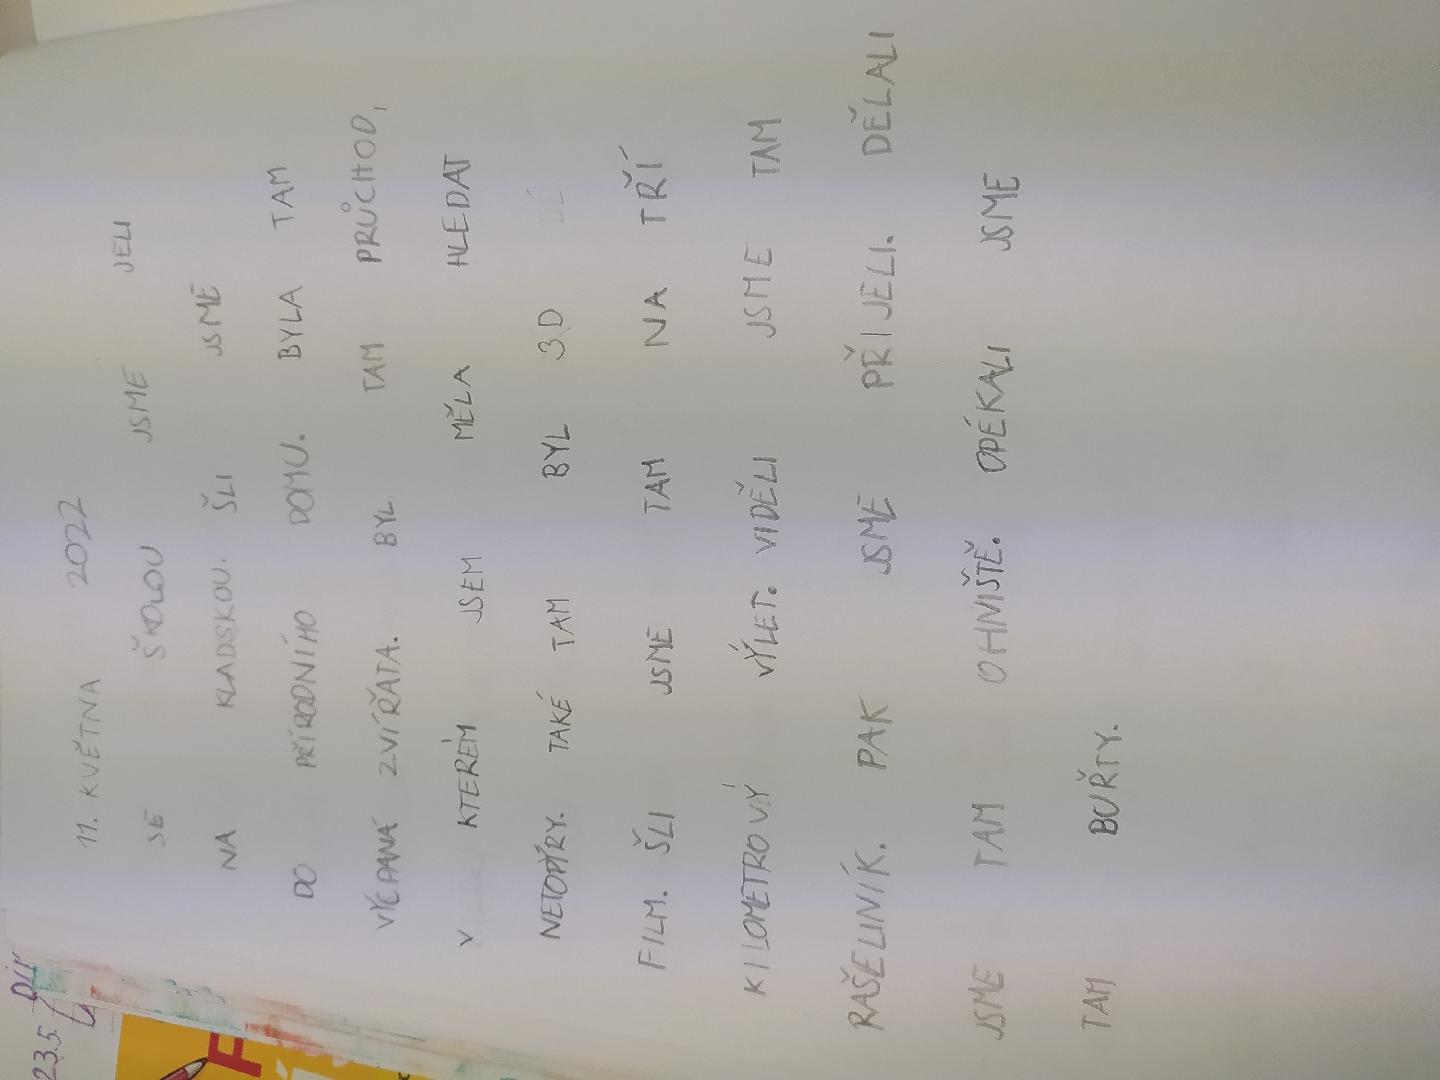 11. KVĚTNA 2022
SE ŠKOLOU JSME JELI
NA KLADSKOU. ŠLI JSME
DO PŘÍRODNÍHO DOMU. BYLA TAM
VYCPANÁ ZVÍŘATA. BYL TAM PRŮCHOD,
V KTERÉM JSEM MĚLA HLEDAT
NETOPÝRY. TAKÉ TAM BYL 3D
FILM. ŠLI JSME TAM NA TŘÍ
KILOMETROVÝ VÝLET. VIDĚLI JSME TAM
RAŠELINÍK. PAK JSME PŘIJELI. DĚLALI
JSME TAM OHNIŠTĚ. OPÉKALI JSME
TAM BUŘTY.
23.5.